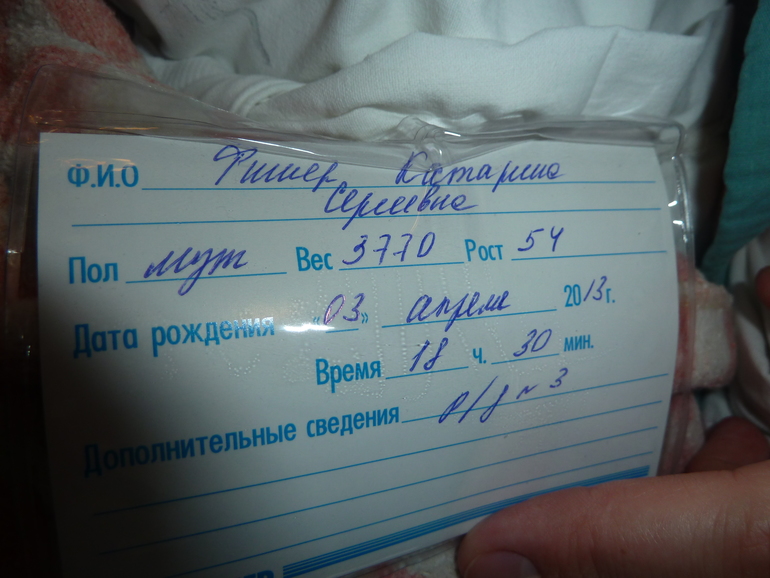 Ф.И.О Фишер Катарина
Сергеевна
Пол муж Вес 3770 Рост 54
Дата рождения «03» апреля 2013 г.
Время 18 ч. 30 мин.
Дополнительные сведения р/д № 3